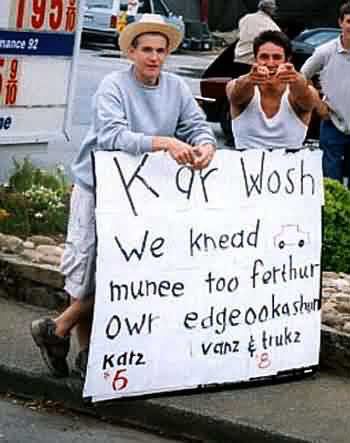 195 9/10
nance 92
9 9/10
Kar Wosh
We knead
munee too ferthur
owr edgeookashun
Karz vanz & trukz
$6 $8